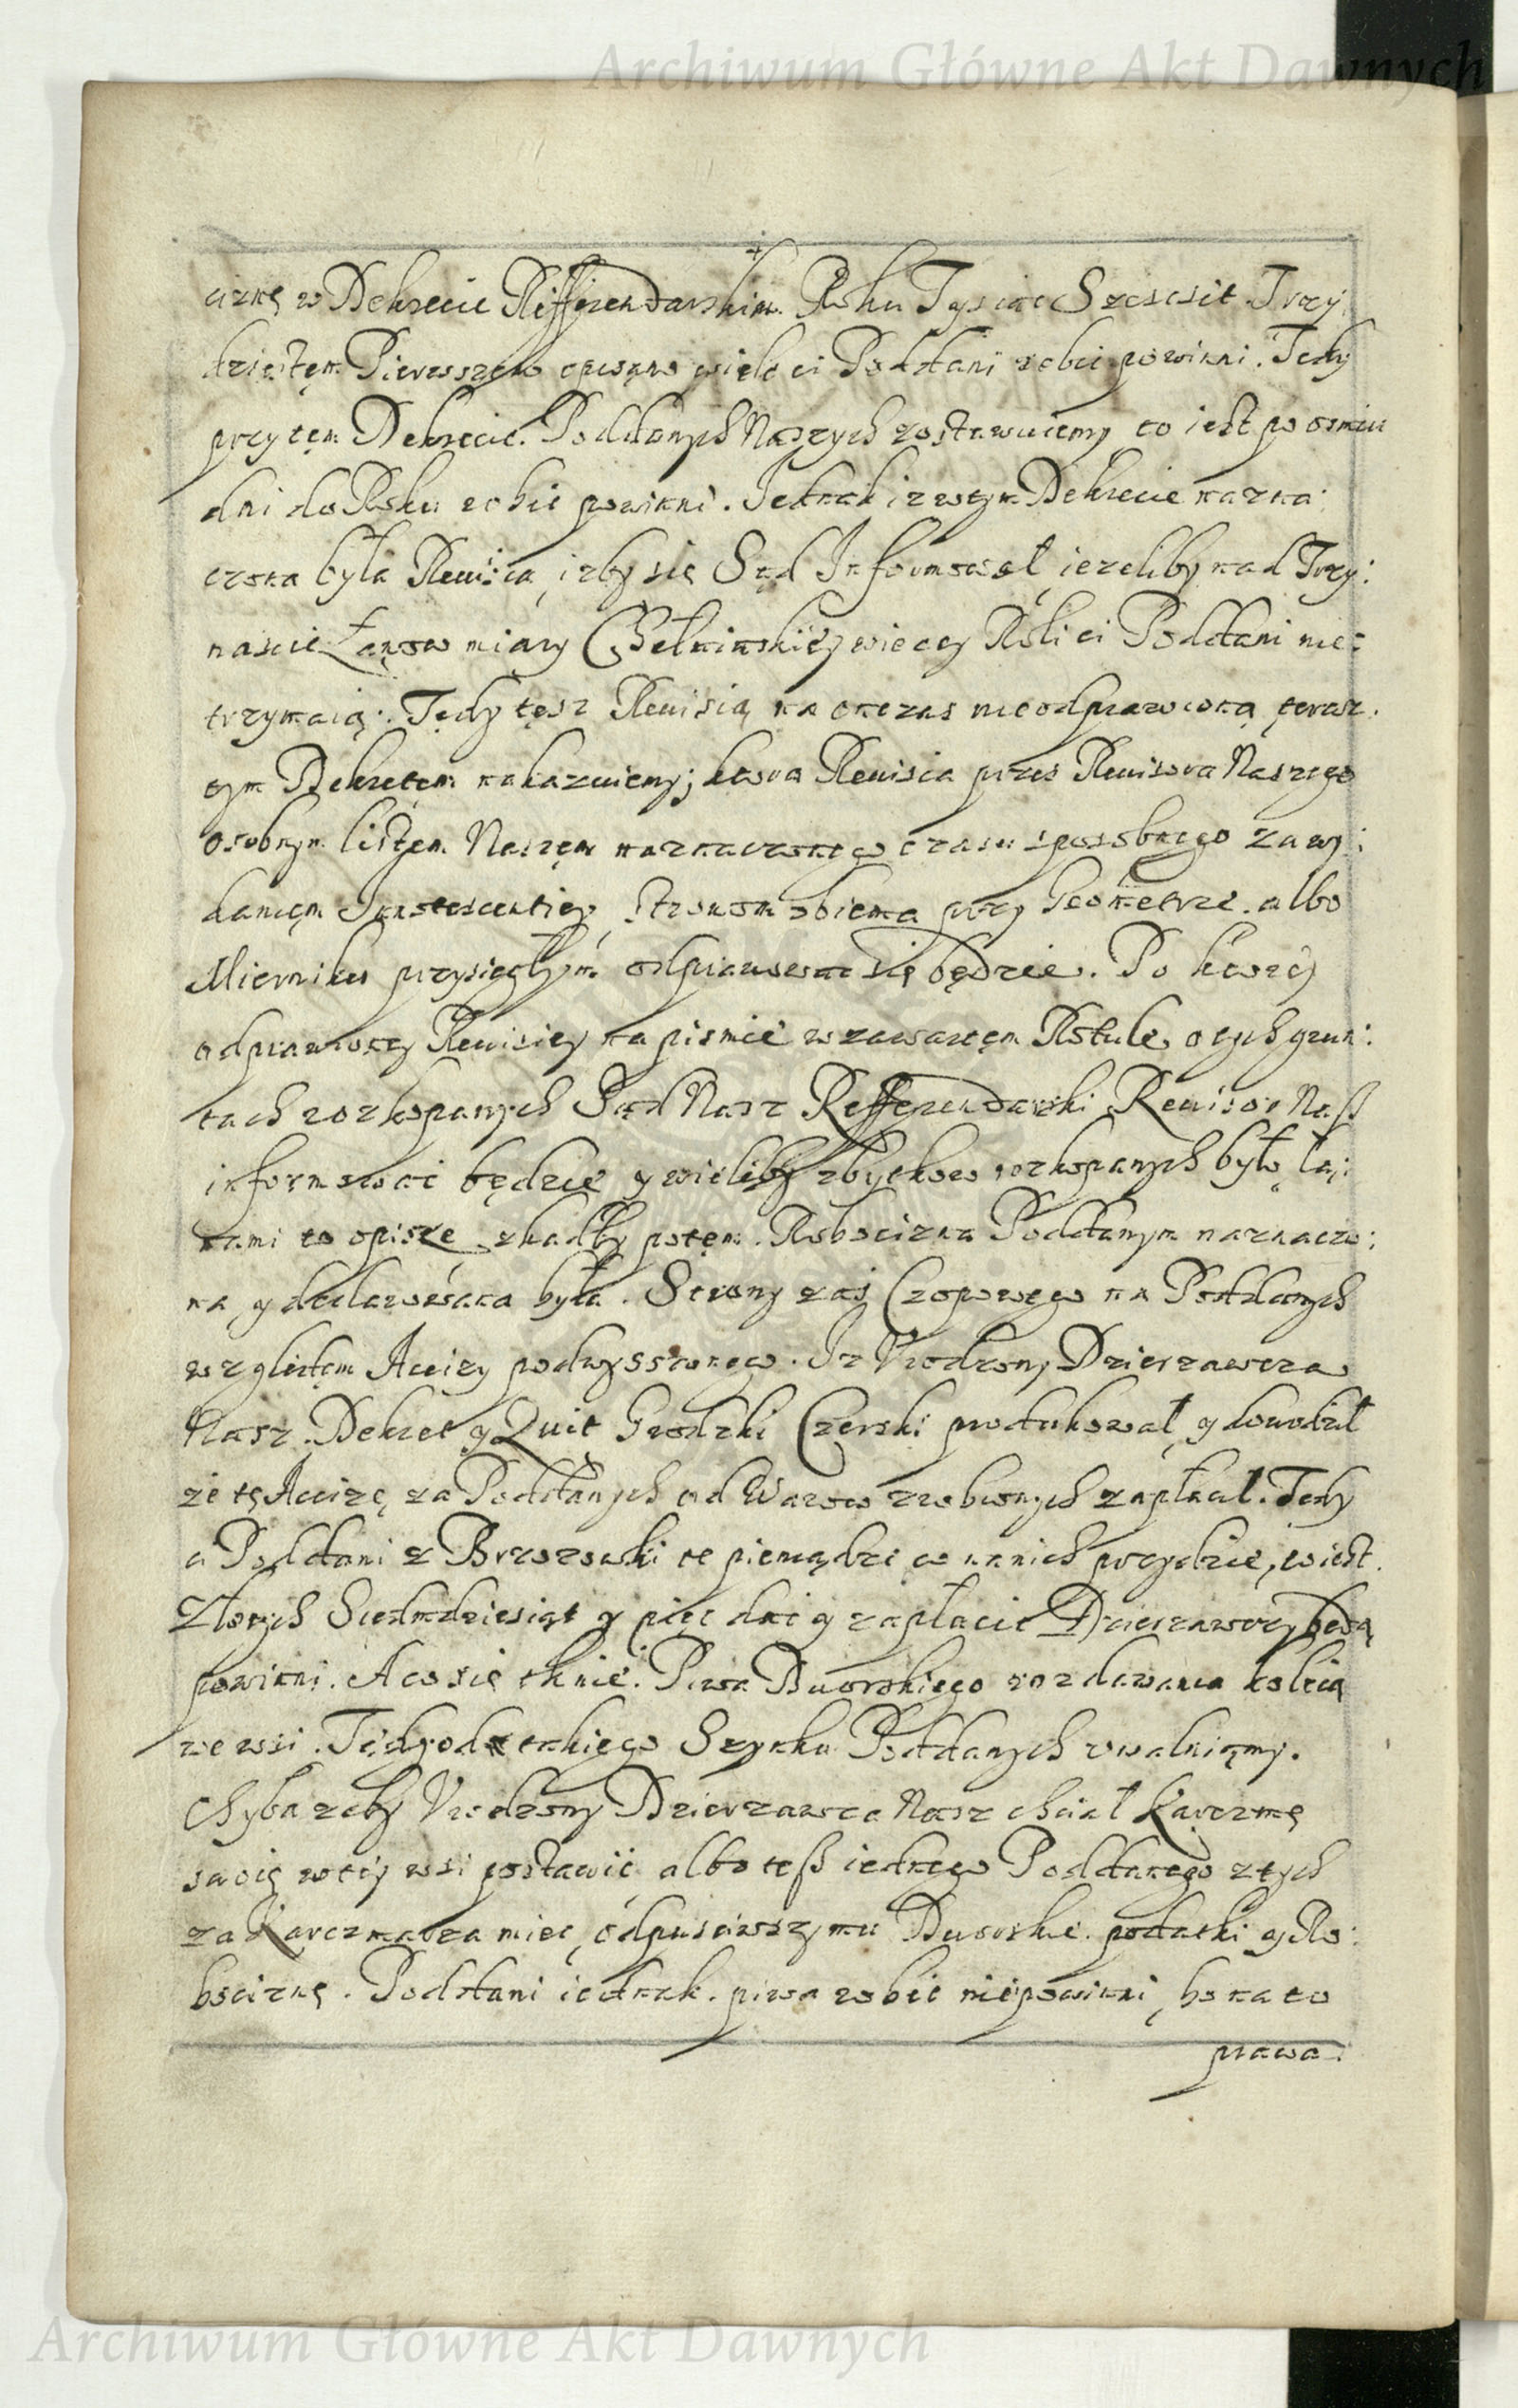 Archiwum Główne Akt Dawnych
ciznę w Dekrecie Refferendarskim Roku Tysiąc Szescsit Trzy
dziestęm Pierwszem opisano wiele ci Poddani robic powinni. Tedy
przy tęm Dekrecie Poddanych Naszych zostawuiemy to iest po osmiu
dni do Roku robic powinni. Iednak iz w tym Dekrecie nazna:
czona była Rewisia, izby się Sąd Informował, iezeliby nad Trzy:
nascie Łanow miary Chełminskiey wiecey Roli ci Poddani nie:
trzymaią. Tedy tęsz Rewisią na onczas nieodprawioną teras.
tym Dekretęm nakazuiemy; ktora Rewisia przes Rewisora Naszego
osobnym listęm Naszęm naznaczonego czasu sposobnego za wy:
danięm Innotescentiey Stronom obiema przy Geometrze albo
Mierniku przysięgłym odprawowac się będzie. Po ktorey
odprawioney Rewisiey na pismie w zawartęm Rotule o tych grun:
tach rozkopanych Sąd Nasz Refferendarski Rewisor Nasz
informowac będzie y wieliby zbytkow rozkopanych było Ła:
nami to opisze, zkadby potęm Robocizna Poddanym naznaczo:
na y deklarowana była. Strony zas Czopowego na Poddanych
względęm Accizy podwysszonego. Iz Urodzony Dzierzawcza
Nasz Dekret y Quit Grodzki Czerski produkował, y dowodził
ze tę Accizę za Poddanych od Warow zrobionych zapłacił. Tedy
ci Poddani z Brzozowki te pieniądze co na nich przydzie, to iest
Złotych Siedmdziesiąt y pięc dac y zapłacic Dzierzawczy będą
powinni. A co się tknie Piwa Dworskiego rozdawania koleią
we wsi. Tedy od takięgo Szynku Poddanych uwalniąmy.
Chyba zeby Urodzony Dzierzawca Nasz chciał Karczmę
swoię w tey wsi postawic albo tesz iednego Poddanego z tych
za Karczmarza miec, odpusciwszy mu Dworskie podatki y Ro:
bociznę. Poddani iednak piwa robic niepowinni, bo na to
prawa
Archiwum Główne Akt Dawnych